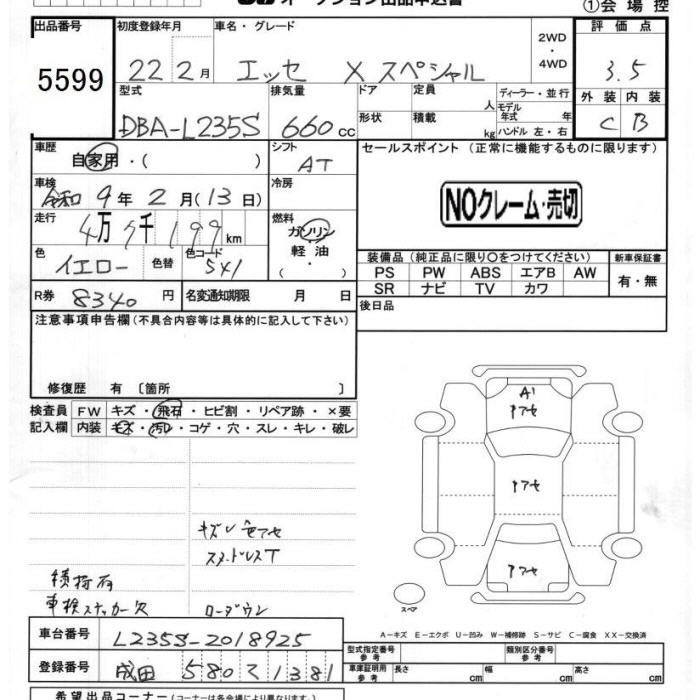 オークション出品申込書
①会場控
出品番号
5599
初度登録年月
22 2月
車名・グレード
エッセ Xスペシャル
2WD
・
4WD
評価点
3.5
型式
DBA-L235S
排気量
660cc
ドア
形状
定員 人
積載 kg
ディーラー・並行
モデル年式 年
ハンドル 左・右
外装 内装
C B
車歴
自家用・( )
シフト
AT
セールスポイント (正常に機能するものに限ります)
NOクレーム・売切
車検
令和9年2月(13日)
冷房
走行
4万 千199km
燃料
ガソリン
・
軽油
・
色
イエロー
色替
色コード
装備品 (純正品に限り○をつけてください)
新車保証書
PS PW ABS エアB AW
SR ナビ TV カワ
有・無
R券
8340円
名変通知期限 月 日
後日品
注意事項申告欄 (不具合内容等は具体的に記入して下さい)
修復歴 有 [箇所 ]
検査員
記入欄
FW キズ・飛石・ヒビ割・リペア跡・×要
内装 キズ・汚レ・コゲ・穴・スレ・キレ・破レ
キズ 色アセ
スタッドレスT
積持有
車検ステッカー欠
ローダウン
A1
アセ
アセ
アセ
スペア
A-キズ E-エクボ U-凹み W-補修跡 S-サビ C-腐食 XX-交換済
車台番号
L235S-2018925
登録番号
成田 580 て 1381
型式指定番号
参考
類別区分番号
参考
車庫証明用
参考
長さ cm
幅 cm
高さ cm
希望出品コーナー (コーナーは各会場により異なります)